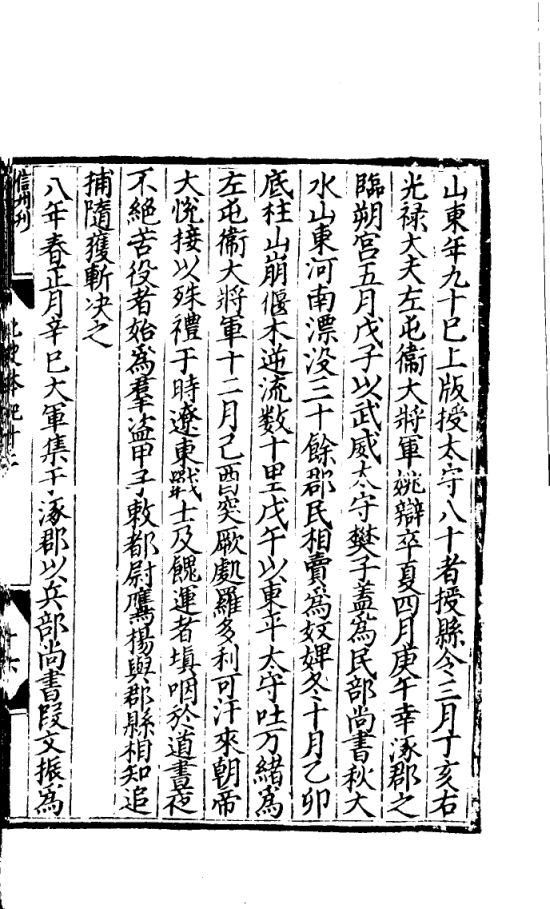 山東年九十已上版授太守八十者授縣令三月丁亥右
光禄大夫左屯衞大將軍姚辯卒夏四月庚午幸涿郡之
臨朔宮五月戊子以武威太守樊子蓋爲民部尚書秋大
水山東河南漂没三十餘郡民相賣爲奴婢冬十月乙卯
底柱山崩偃木逆流數十里戊午以東平太守吐万緒爲
左屯衞大將軍十二月己酉突厥處羅多利可汗來朝帝
大悅接以殊禮于時遼東戰士及餽運者填咽於道晝夜
不絶苦役者始爲羣盜甲子敕都尉鷹揚與郡縣相知追
捕隨獲斬决之
八年春正月辛巳大軍集于涿郡以兵部尚書段文振爲
信州刊
北史本紀十二
十六